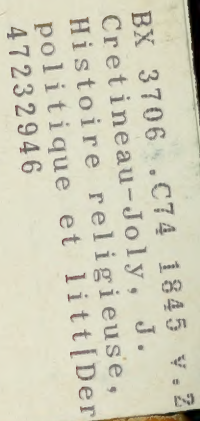 BX 3706 .C74 1845 v.2
Cretineau-Joly, J.
Histoire religieuse,
politique et litt[Der
47232946